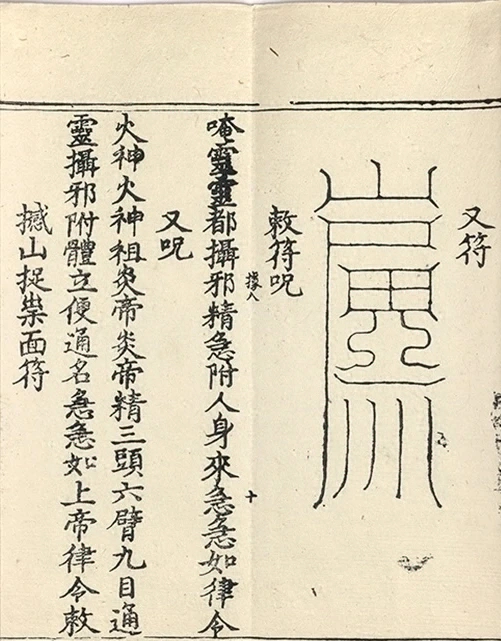 又符
敕符呪
唵靈靈都攝邪精急附人身來急急如律令
又呪
火神火神祖炎帝炎帝精三頭六臂九目通
靈攝邪附體立便通名急急如上帝律令敕
撼山捉祟面符